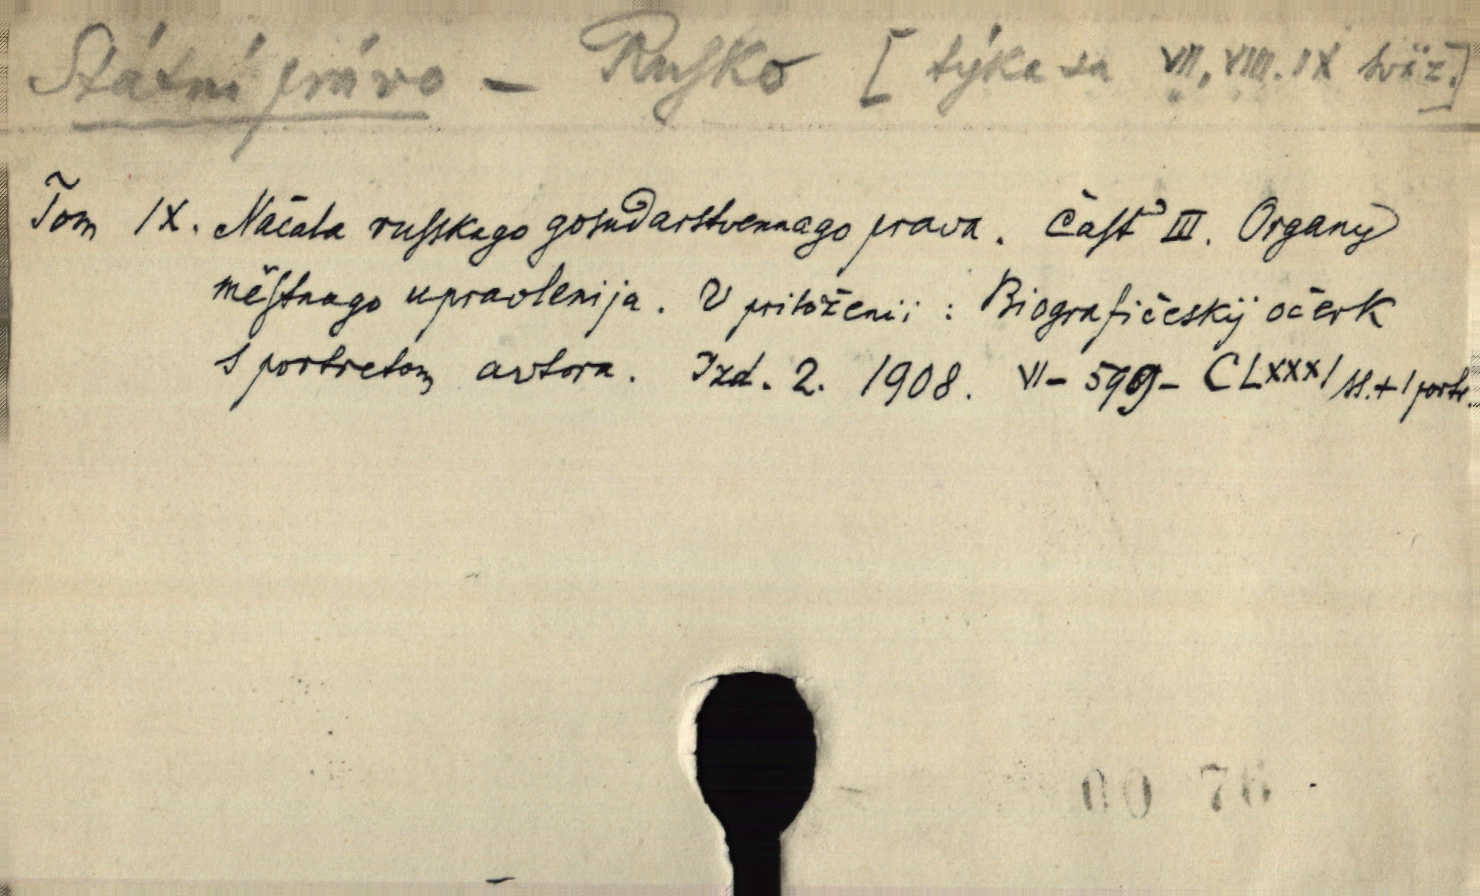 Státní právo – Rusko [týka sa VII, VIII. IX sväz.]
Tom IX. Načala russkago gosudarstvennago prava. Část' III. Organy
městnago upravlenija. V priloženii: Biografičeskij očerk
s portretom avtora. Izd. 2. 1908. VI – 599 – CLXXXI ss. + 1 portr.
00 76